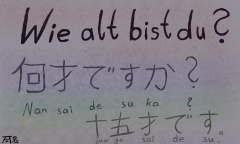 Wie alt bist du?
何才ですか?
Nan sai de su ka ?
十五才です。
juu go sai de su.